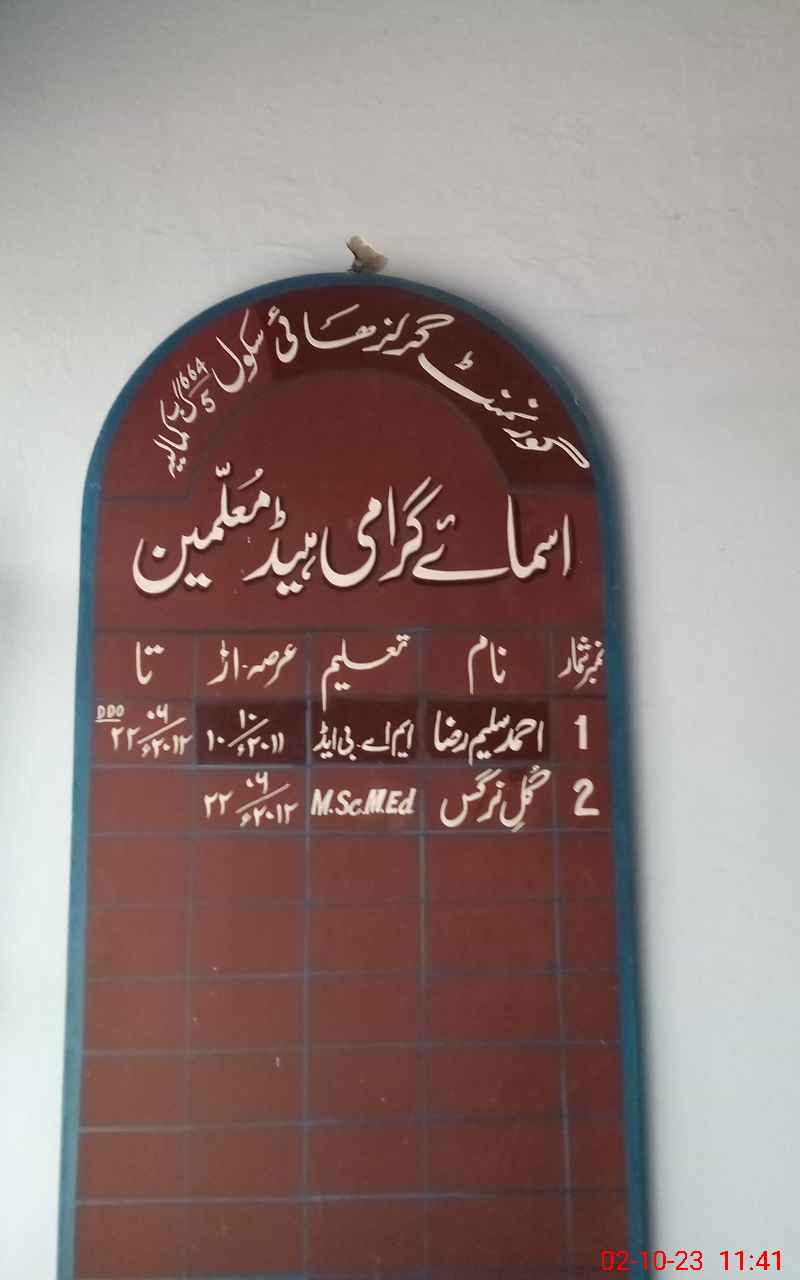 گورنمنٹ گرلز ھائی سکول 664/5 گ ب کمالیہ
اسمائے گرامی ہیڈ مُعلّمین
نمبر شمار نام تعلیم عرصہ از تا
1 احمد سلیم رضا ایم اے بی ایڈ ۱۰/۱۰/۲۰۱۱ء DDO ۲۲/۰۶/۲۰۱۲ء
2 گُلِ نرگس M.Sc.M.Ed ۲۲/۰۶/۲۰۱۲ء
02-10-23 11:41